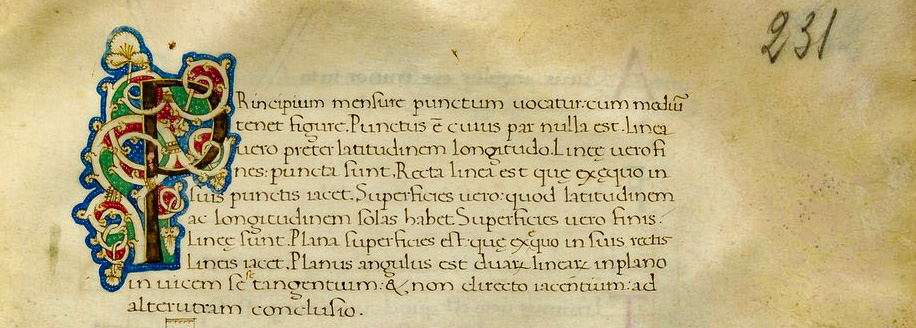 231
PRincipium mensure punctum uocatur:cum mediū
tenet figure.Punctus ē cuius par nulla est.linea
uero preter latitudinem longitudo.Lineę uero fi
nes:puncta sunt.Recta linea est que exęquo in
suis punctis iacet.Superficies uero:quod latitudinem
ac longitudinem solas habet.Superficies uero finis.
lineę sunt.Plana superficies est quę exęquo in suis rectis
lineis iacet.Planus angulus est duaꝝ lineaꝝ inplano
in uicem se se tangentium:& non directo iacentium:ad
alterutram conclusio.